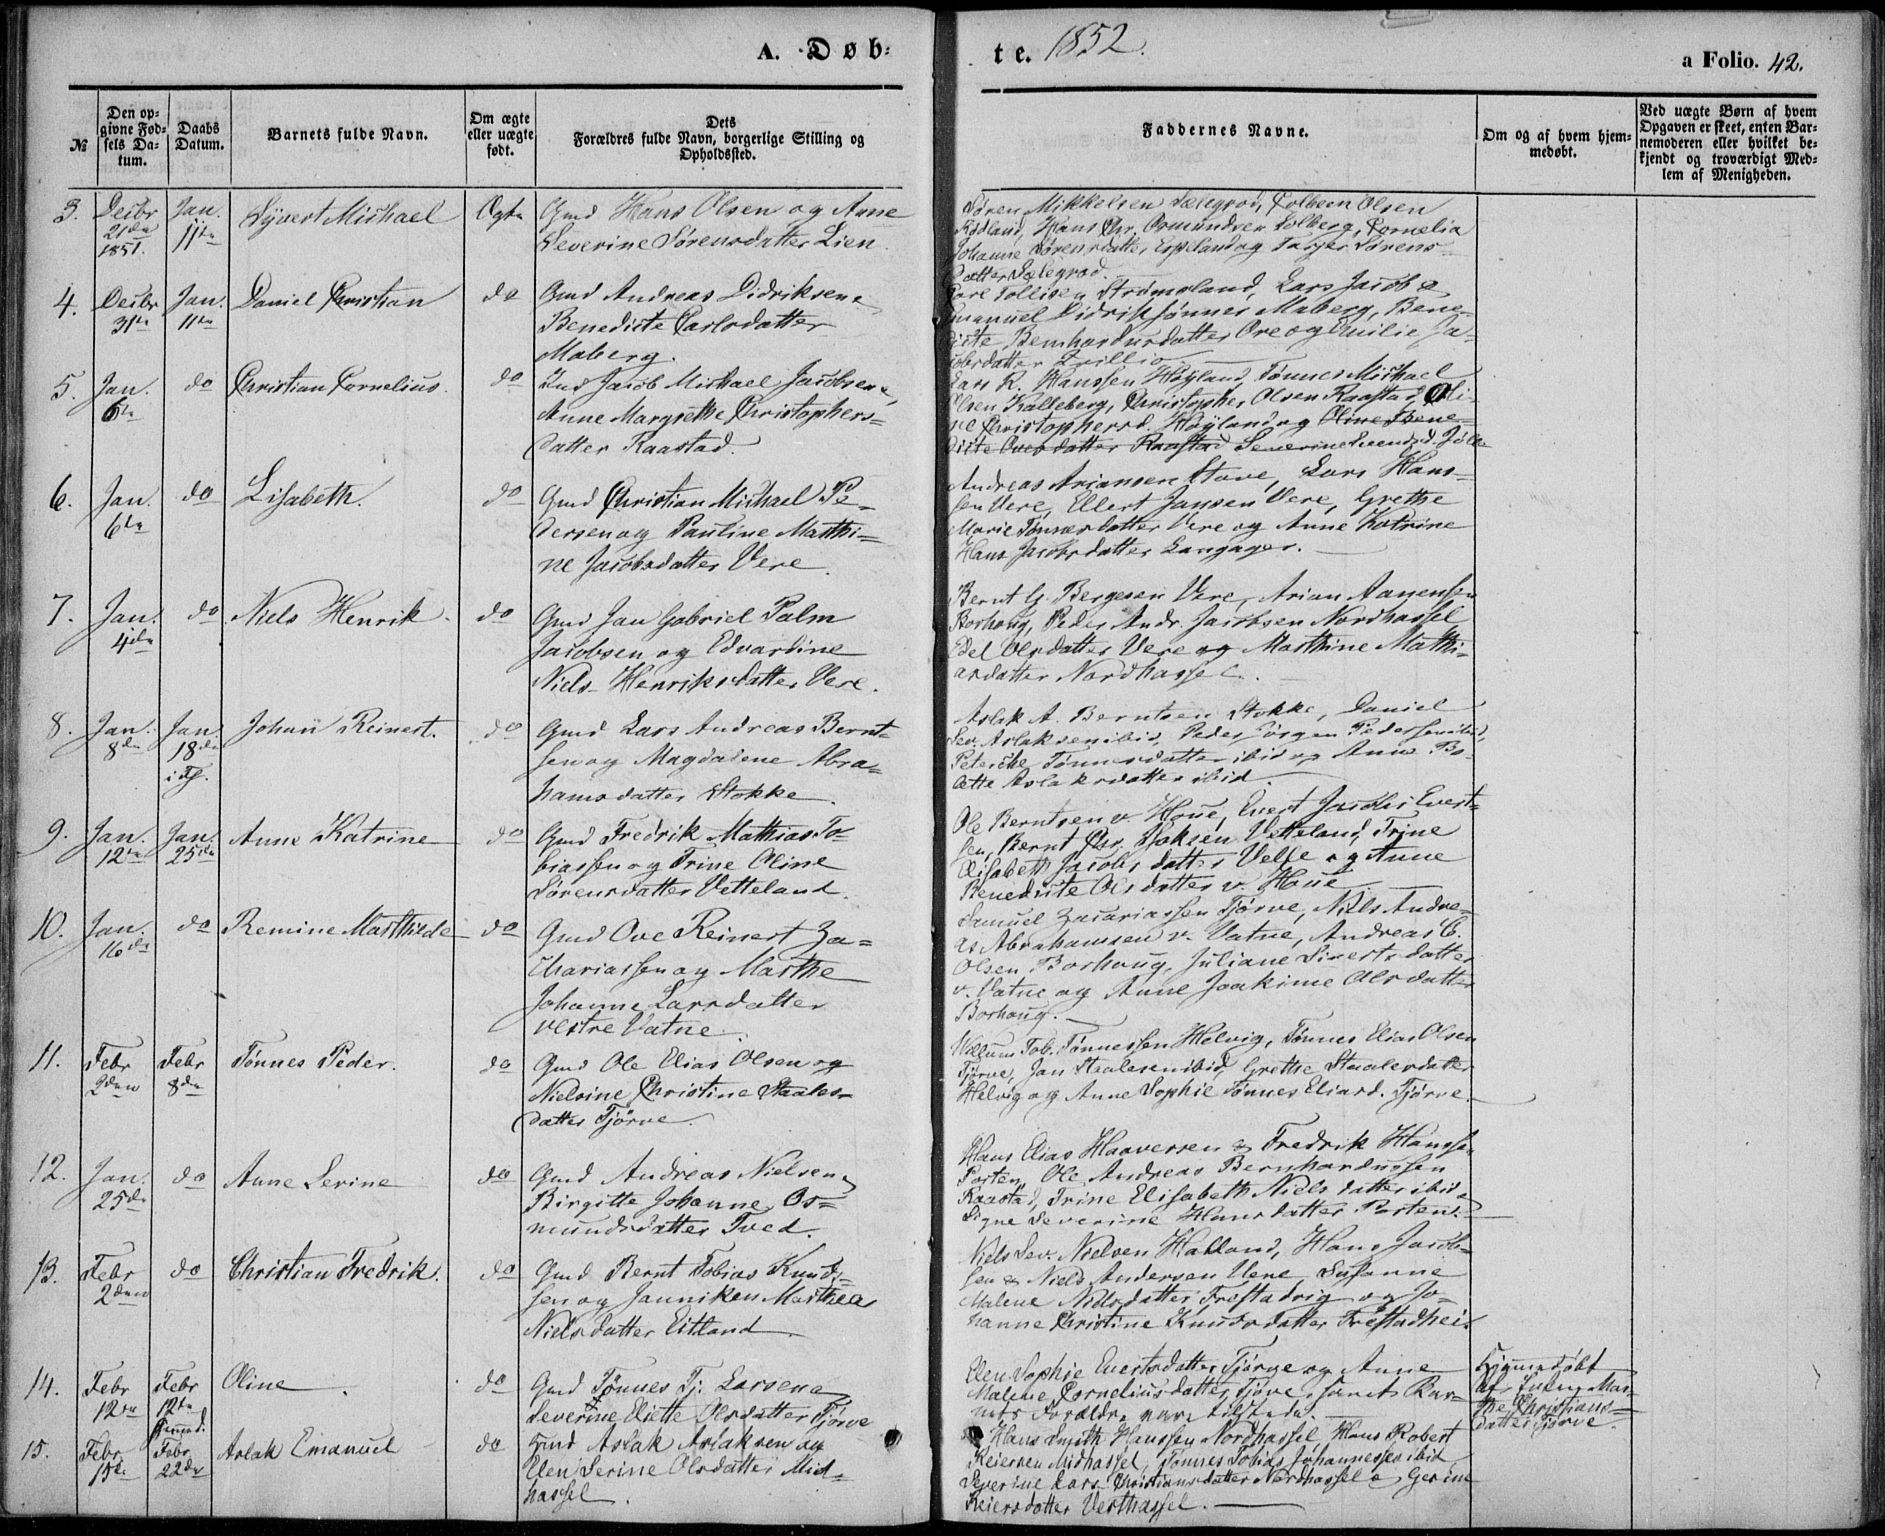 A. Døb-
te. 1852.
a Folio. 42.
№
Den op-
givne Fød-
sels Da-
tum.
Daabs
Datum.
Barnets fulde Navn.
Om ægte
eller uægte
født.
Dets
Forældres fulde Navn, borgerlige Stilling og
Opholdssted.
Faddernes Navne.
Om og af hvem hjem-
medøbt.
Ved uægte Børn af hvem
Opgaven er skeet, enten Bar-
nemoderen eller hvilket be-
kjendt og troværdigt Med-
lem af Menigheden.
3. Decbr 21de 1851. Jan. 11te Syvert Michael Ægte
Gmd Hans Olsen og Anne
Severine Sørensdatter Lien.
Søren Mikkelsen Sælegrod, Colbeen Olsen
Rødland, Hans Chr. Osmundsen Solberg, Cornelia
Johanne Sørensdatter Espeland og Tasjer Sørens-
datter Sælegrod.
4. Decbr 31te Jan. 11te Daniel Christian do
Gmd Andreas Didriksen &
Benedicte Carlsdatter
Maberg.
Carl Tollisen Strømsland, Lars Jacob &
Emanuel Didriksønner Maberg, Bene-
dicte Bernhardusdatter Ore og Emilie Ja-
cobsdatter
5. Jan. 6te do Christian Cornelius. do
Ind Jacob Michael Jacobsen &
Anne Margrethe Christophers-
datter Raastad.
Lars R. Hanssen Høyland, Tønnes Michael
Olsen Kalleberg, Christopher Olsen Raastad, Oli-
ne Christophersd. Høyland og Oline Bene-
dicte Ovesdatter Raastad Severine Svendsd.
6. Jan. 6te do Lisabeth. do
Gmd Christian Michael Pe-
dersen og Pauline Matthi-
ne Jacobsdatter Vere.
Andreas Ariansen Stave, Lars Hans-
sen Vere, Ellert Jansen Vere, Grethe
Marie Tønnesdatter Vere og Anne Katrine
Hans Jacobsdatter Langager.
7. Jan. 4de do Niels Henrik. do
Gmd Jan Gabriel Palm
Jacobsen og Edvardine
Niels Henriksdatter Vere.
Bernt G. Bergesen Vere, Arian Aanensen
Borhaug, Peder Andr. Jacobsen Nordhassel
Edel Olsdatter Vere og Marthine Mathi-
asdatter Nordhassel.
8. Jan. 8de Jan. 18de i Kj. Johan Reinert. do
Gmd Lars Andreas Bernt-
sen og Magdalene Abra-
hamsdatter Stokke.
Aslak A. Berntsen Stokke, Daniel
Sev. Aslaksen ibid, Peder Jørgen Pedersen ibid,
Petersche Tønnesdatter ibid og Anne Bo-
lette Aslaksdatter ibid.
9. Jan. 12te Jan. 25de Anne Katrine do
Gmd Fredrik Mathias To-
biassen og Trine Oline
Sørensdatter Vetteland.
Ole Berntsen v. Houe, Evert Jacobs Evert-
sen, Bernt Chr. Isaksen Vetteland, Trine
Elisabeth Jacobsdatter Velle og Anne
Benedicte Olsdatter v. Houe
10. Jan. 16de do Remine Marthilde do
Gmd Ove Reinert Za-
chariassen og Marthe
Johanne Larsdatter
vestre Vatne.
Samuel Zacariassen Tjørve, Niels Andre-
as Abrahamsen v. Vatne, Andreas C.
Olsen Borhaug, Juliane Sivertsdatter
v. Vatne og Anne Joakime Olsdatter
Borhaug.
11. Febr 2den Febr 8de Tønnes Peder. do
Gmd Ole Elias Olsen og
Nielsine Christine Staales-
datter Tjørve.
Willum Tob. Tønnessen Helvig, Tønnes Elias Olsen
Tjørve, Jan Staalesen ibid, Grethe Staalesdatter
Helvig og Anne Sophie Tønnes Eliasd. Tjørve.
12. Jan. 25de do Anne Serine do
Gmd Andreas Nielsen &
Birgitte Johanne Os-
mundsdatter Tved.
Hans Elias Haaversen & Fredrik Hanssen
Porten, Ole Andreas Bernhardussen
Raastad, Trine Elisabeth Nielsdatter ibid &
Signe Severine Hansdatter Porten.
13. Febr 2den do Christian Fredrik. do
Gmd Bernt Tobias Knud-
sen og Janniken Marthea
Nielsdatter Eitland
Niels Sev. Nielsen Hatland, Hans Jacob-
sen & Niels Andersen Vere, Susanne
Malene Nielsdatter Frestadvig og Jo-
hanne Christine Knudsdatter Frestadhei.
14. Febr 12te Febr 12te Oline. do
Gmd Tønnes Tj. Larsen &
Severine Eliette Olsdatter Tjørve
Elen Sophie Evertsdatter Tjørve og Anne
Malene Corneliusdatter Tjørve, samt Bar-
nets Forældre vare tilstede.
Hjemmedøbt
af Mar-
the Christians-
datter Tjørve.
15. Febr 15de Febr 22de Aslak Emanuel do
Gmd Aslak Aslaksen og
Elen Serine Olsdatter Mid-
hassel.
Hans Smith Hanssen Nordhassel, Hans Robert
Reiersen Midhassel, Tønnes Tobias Johannessen ibid
Severine Lars Christiansdatter Nordhassel & Gerine
Reiersdatter Vesthassel.